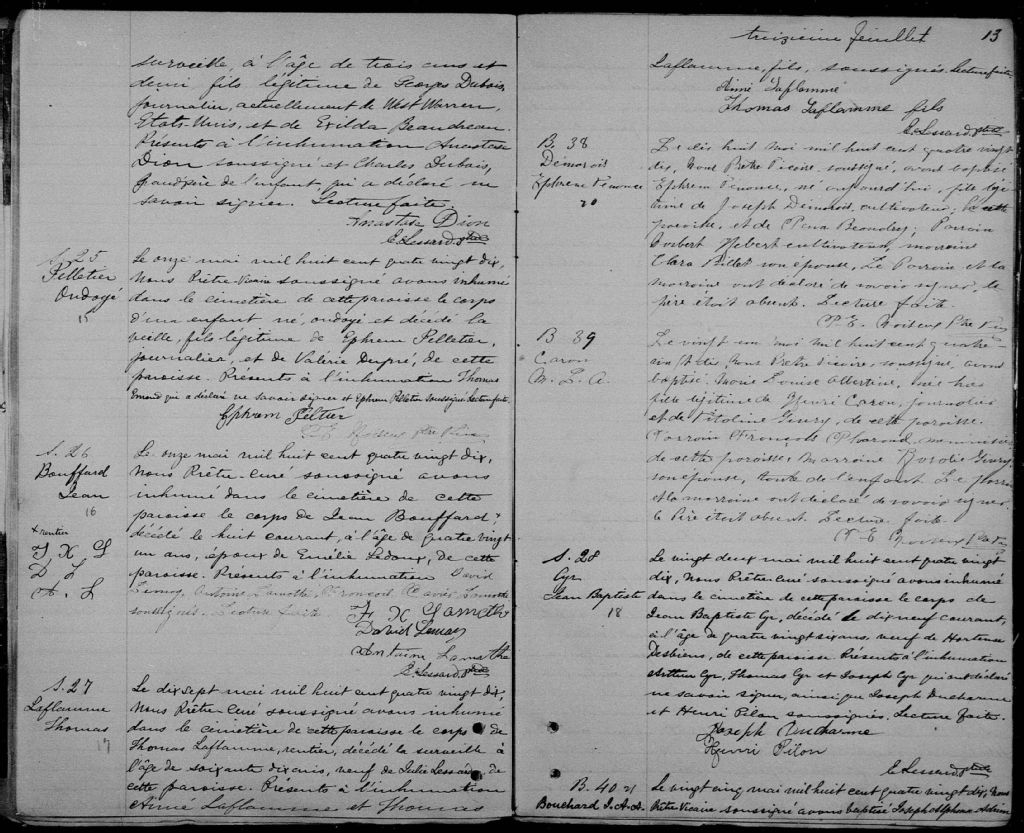 surveille, à l'âge de trois ans et
demi fils légitime de Georges Dubois,
journalier, actuellement de West Warren,
Etats-Unis, et de Exilda Beaudreau.
Présents à l'inhumation Anastase
Dion soussigné et Charles Dubois,
grandpère de l'enfant, qui a déclaré ne
savoir signer. Lecture faite.
Anastase Dion
E. Lessard, Ptre
S. 25
Pelletier
Ondoyé
15
Le onze mai mil huit cent quatre vingt dix,
Nous Prêtre-Vicaire soussigné avons inhumé
dans le cimetière de cette paroisse le corps
d'un enfant né, ondoyé et décédé la
veille, fils légitime de Ephrem Pelletier,
journalier, et de Valérie Dupré, de cette
paroisse. Présents à l'inhumation Thomas
Emond qui a déclaré ne savoir signer et Ephrem Pelletier soussigné. Lecture faite.
Ephrem Peltier
S. 26
Bouffard
Jean
16
x rentier
F X L
D L
A. L
Le onze mai mil huit cent quatre vingt dix,
Nous Prêtre-Curé soussigné avons
inhumé dans le cimetière de cette
paroisse le corps de Jean Bouffard,x
décédé le huit courant, à l'âge de quatre vingt
un ans, époux de Emélie Ledoux, de cette
paroisse. Présents à l'inhumation David
Lemay, Antoine Lamothe, François Xavier Lamothe
soussignés. Lecture faite
F X Lamothe
David Lemay
Antoine Lamothe
E. Lessard, Ptre
S. 27
Laflamme
Thomas
17
Le dix sept mai mil huit cent quatre vingt dix,
Nous Prêtre-Curé soussigné avons inhumé
dans le cimetière de cette paroisse le corps de
Thomas Laflamme, rentier, décédé la surveille à
l'âge de soixante dix ans, veuf de Julie Lessard, de
cette paroisse. Présents à l'inhumation
Aimé Laflamme et Thomas
treizième feuillet 13
Laflamme, fils, soussignés. Lecture faite
Aimé Laflamme
Thomas Laflamme fils
E. Lessard, Ptre
B. 38
20
Le dix huit mai mil huit cent quatre vingt
dix, Nous Prêtre Vicaire soussigné, avons baptisé
Ephrem, né aujourd'hui, fils légi
time de Joseph, cultivateur, de cette
paroisse, et de Beaudry; Parrain
Hebert cultivateur, marraine
Clara son épouse. Le Parrain et la
marraine ont déclaré ne savoir signer, le
père était absent. Lecture faite
B 39
Caron
M. L. A.
Le vingt un mai mil huit cent quatre
vingt dix, Nous Prêtre Vicaire, soussigné, avons
baptisé Marie Louise Albertine,
fille légitime de Henri Caron, journalier
et de, de cette paroisse.
Parrain François
de cette paroisse, Marraine
son épouse, tante de l'enfant. Le parrain
et la marraine ont déclaré ne savoir signer
le Père était absent. Lecture faite
S. 28
Cyr
Jean Baptiste
18
Le vingt deux mai mil huit cent quatre vingt
dix, Nous Prêtre Curé soussigné avons inhumé
dans le cimetière de cette paroisse le corps de
Jean Baptiste Cyr, décédé le dix neuf courant,
à l'âge de quatre vingt six ans, veuf de Hortense
Desbiens, de cette paroisse. Présents à l'inhumation
Arthur Cyr, Thomas Cyr et Joseph Cyr qui ont déclaré
ne savoir signer, ainsi que Joseph Ducharme
et Henri Pilon soussignés. Lecture faite.
Joseph Ducharme
Henri Pilon
E. Lessard, Ptre
B. 40 21
Bouchard J. A. A.
Le vingt cinq mai mil huit cent quatre vingt dix, Nous
Prêtre Vicaire soussigné avons baptisé Joseph Alphonse